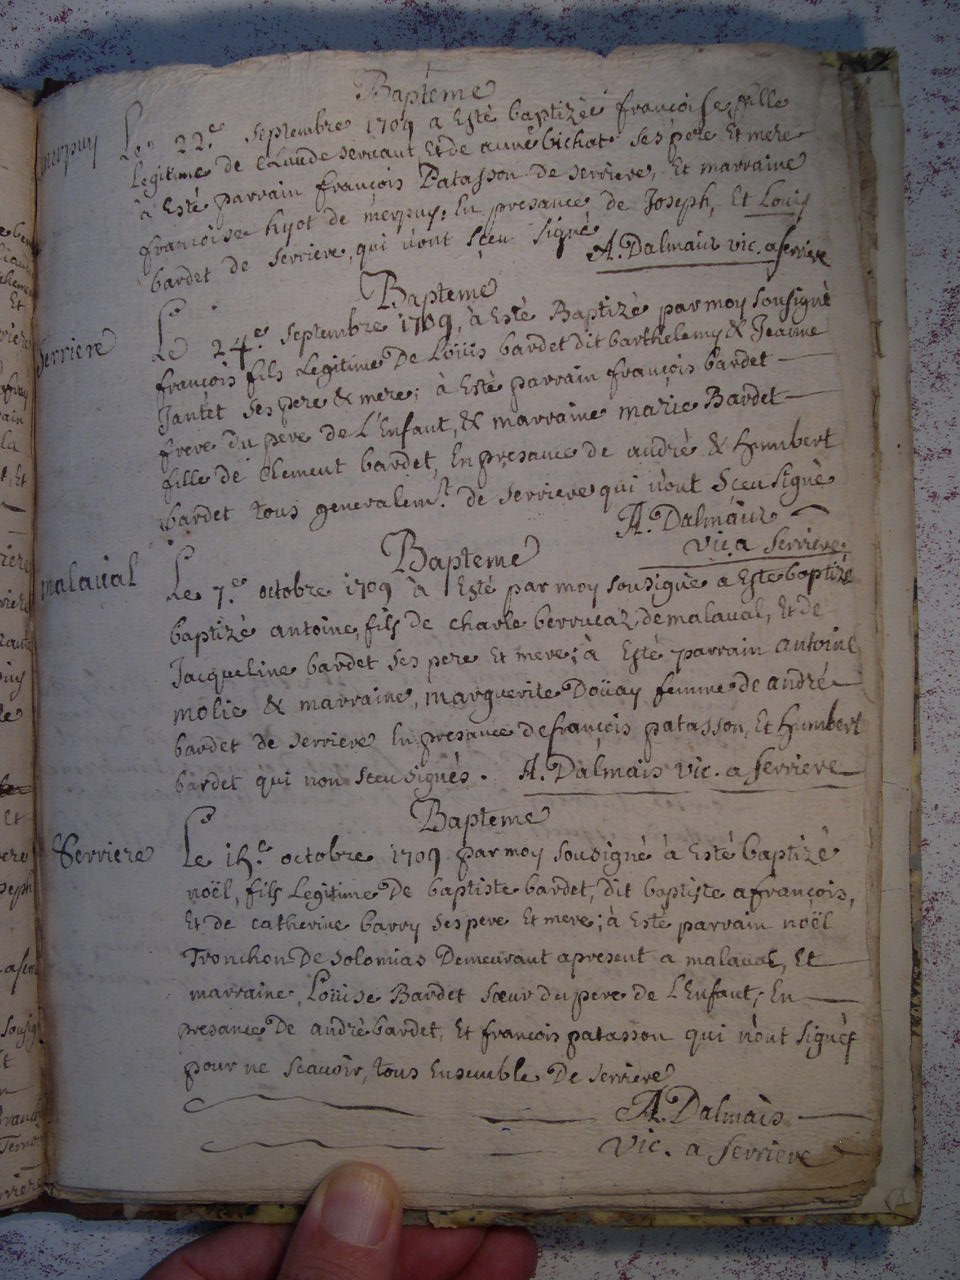 Bapteme
merpuy
Le 22.e Septembre 1709 a Esté baptizée francoise, fille
Legitime de Claude servant Et de anne bichat ses pere Et mere
à Esté parrain françois Patasson de serriere, Et marraine
francoise hyot de merpuy; En presance de Joseph, Et Louis
bardet de serriere, qui n'ont sçeu signé
A. Dalmais vic. a serriere
Bapteme
Serriere
Le 24.e Septembre 1709, à Esté Baptizé par moy sousigné
françois fils Legitime De Loüis bardet dit barthelemy & Jeanne
Jantet ses pere & mere; à Esté parrain françois bardet
frere du pere de L'Enfant, & marraine marie Bardet
fille de Clement bardet, En presance de andrè & Humbert
bardet tous generalem.t de serriere qui n'ont Sceu Signè
A. Dalmais
vic. a Serriere.
Bapteme
malaval
Le 7.e octobre 1709 à Esté par moy sousigne a Este baptizé
baptizé antoine, fils de charle berrucaz de malaval, Et de
Jacqueline bardet ses pere Et mere; à Esté parrain antoine
molie & marraine, marguerite Doüay femme de andrè
bardet de serriere En presance de françois patasson, Et Humbert
bardet qui non sceu signés. A. Dalmais vic. a serriere
Bapteme
Serriere
Le 15.e octobre 1709 par moy sousigné à Esté baptizé
noël, fils Legitime De baptiste bardet, dit baptiste a françois,
Et de catherine barry ses pere Et mere; à Esté parrain noël
Tronchon De solomias Demeurant apresent a malaval, Et
marraine, Loüise Bardet sœur du pere de L'Enfant; En
presance De andrè bardet, Et françois patasson qui n'ont signés
pour ne scavoir, tous Ensemble De serriere
A. Dalmais
vic. a serriere